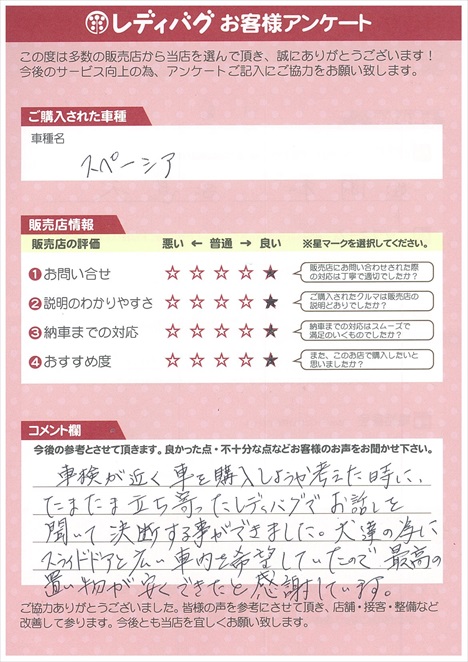 レディバグ お客様アンケート
この度は多数の販売店から当店を選んで頂き、誠にありがとうございます！
今後のサービス向上の為、アンケートご記入にご協力をお願い致します。
ご購入された車種
車種名
スペーシア
販売店情報
販売店の評価 悪い ← 普通 → 良い ※星マークを選択してください。
❶お問い合せ ☆ ☆ ☆ ☆ ★ 販売店にお問い合わせされた際
の対応は丁寧で適切でしたか？
❷説明のわかりやすさ ☆ ☆ ☆ ☆ ★ ご購入されたクルマは販売店の
説明どおりでしたか？
❸納車までの対応 ☆ ☆ ☆ ☆ ★ 納車までの対応はスムーズで
満足のいくものでしたか？
❹おすすめ度 ☆ ☆ ☆ ☆ ★ また、このお店で購入したいと
思いましたか？
コメント欄
今後の参考とさせて頂きます。良かった点・不十分な点などお客様のお声をお聞かせ下さい。
車検が近く車を購入しようか考えた時に、
たまたま立ち寄ったレディバグでお話しを
聞いて決断する事ができました。犬達の為に
スライドドアと広い車内を希望していたので最高の
買い物が安くできたと感謝しています。
ご協力ありがとうございました。皆様の声を参考にさせて頂き、店舗・接客・整備など
改善して参ります。今後とも当店を宜しくお願い致します。